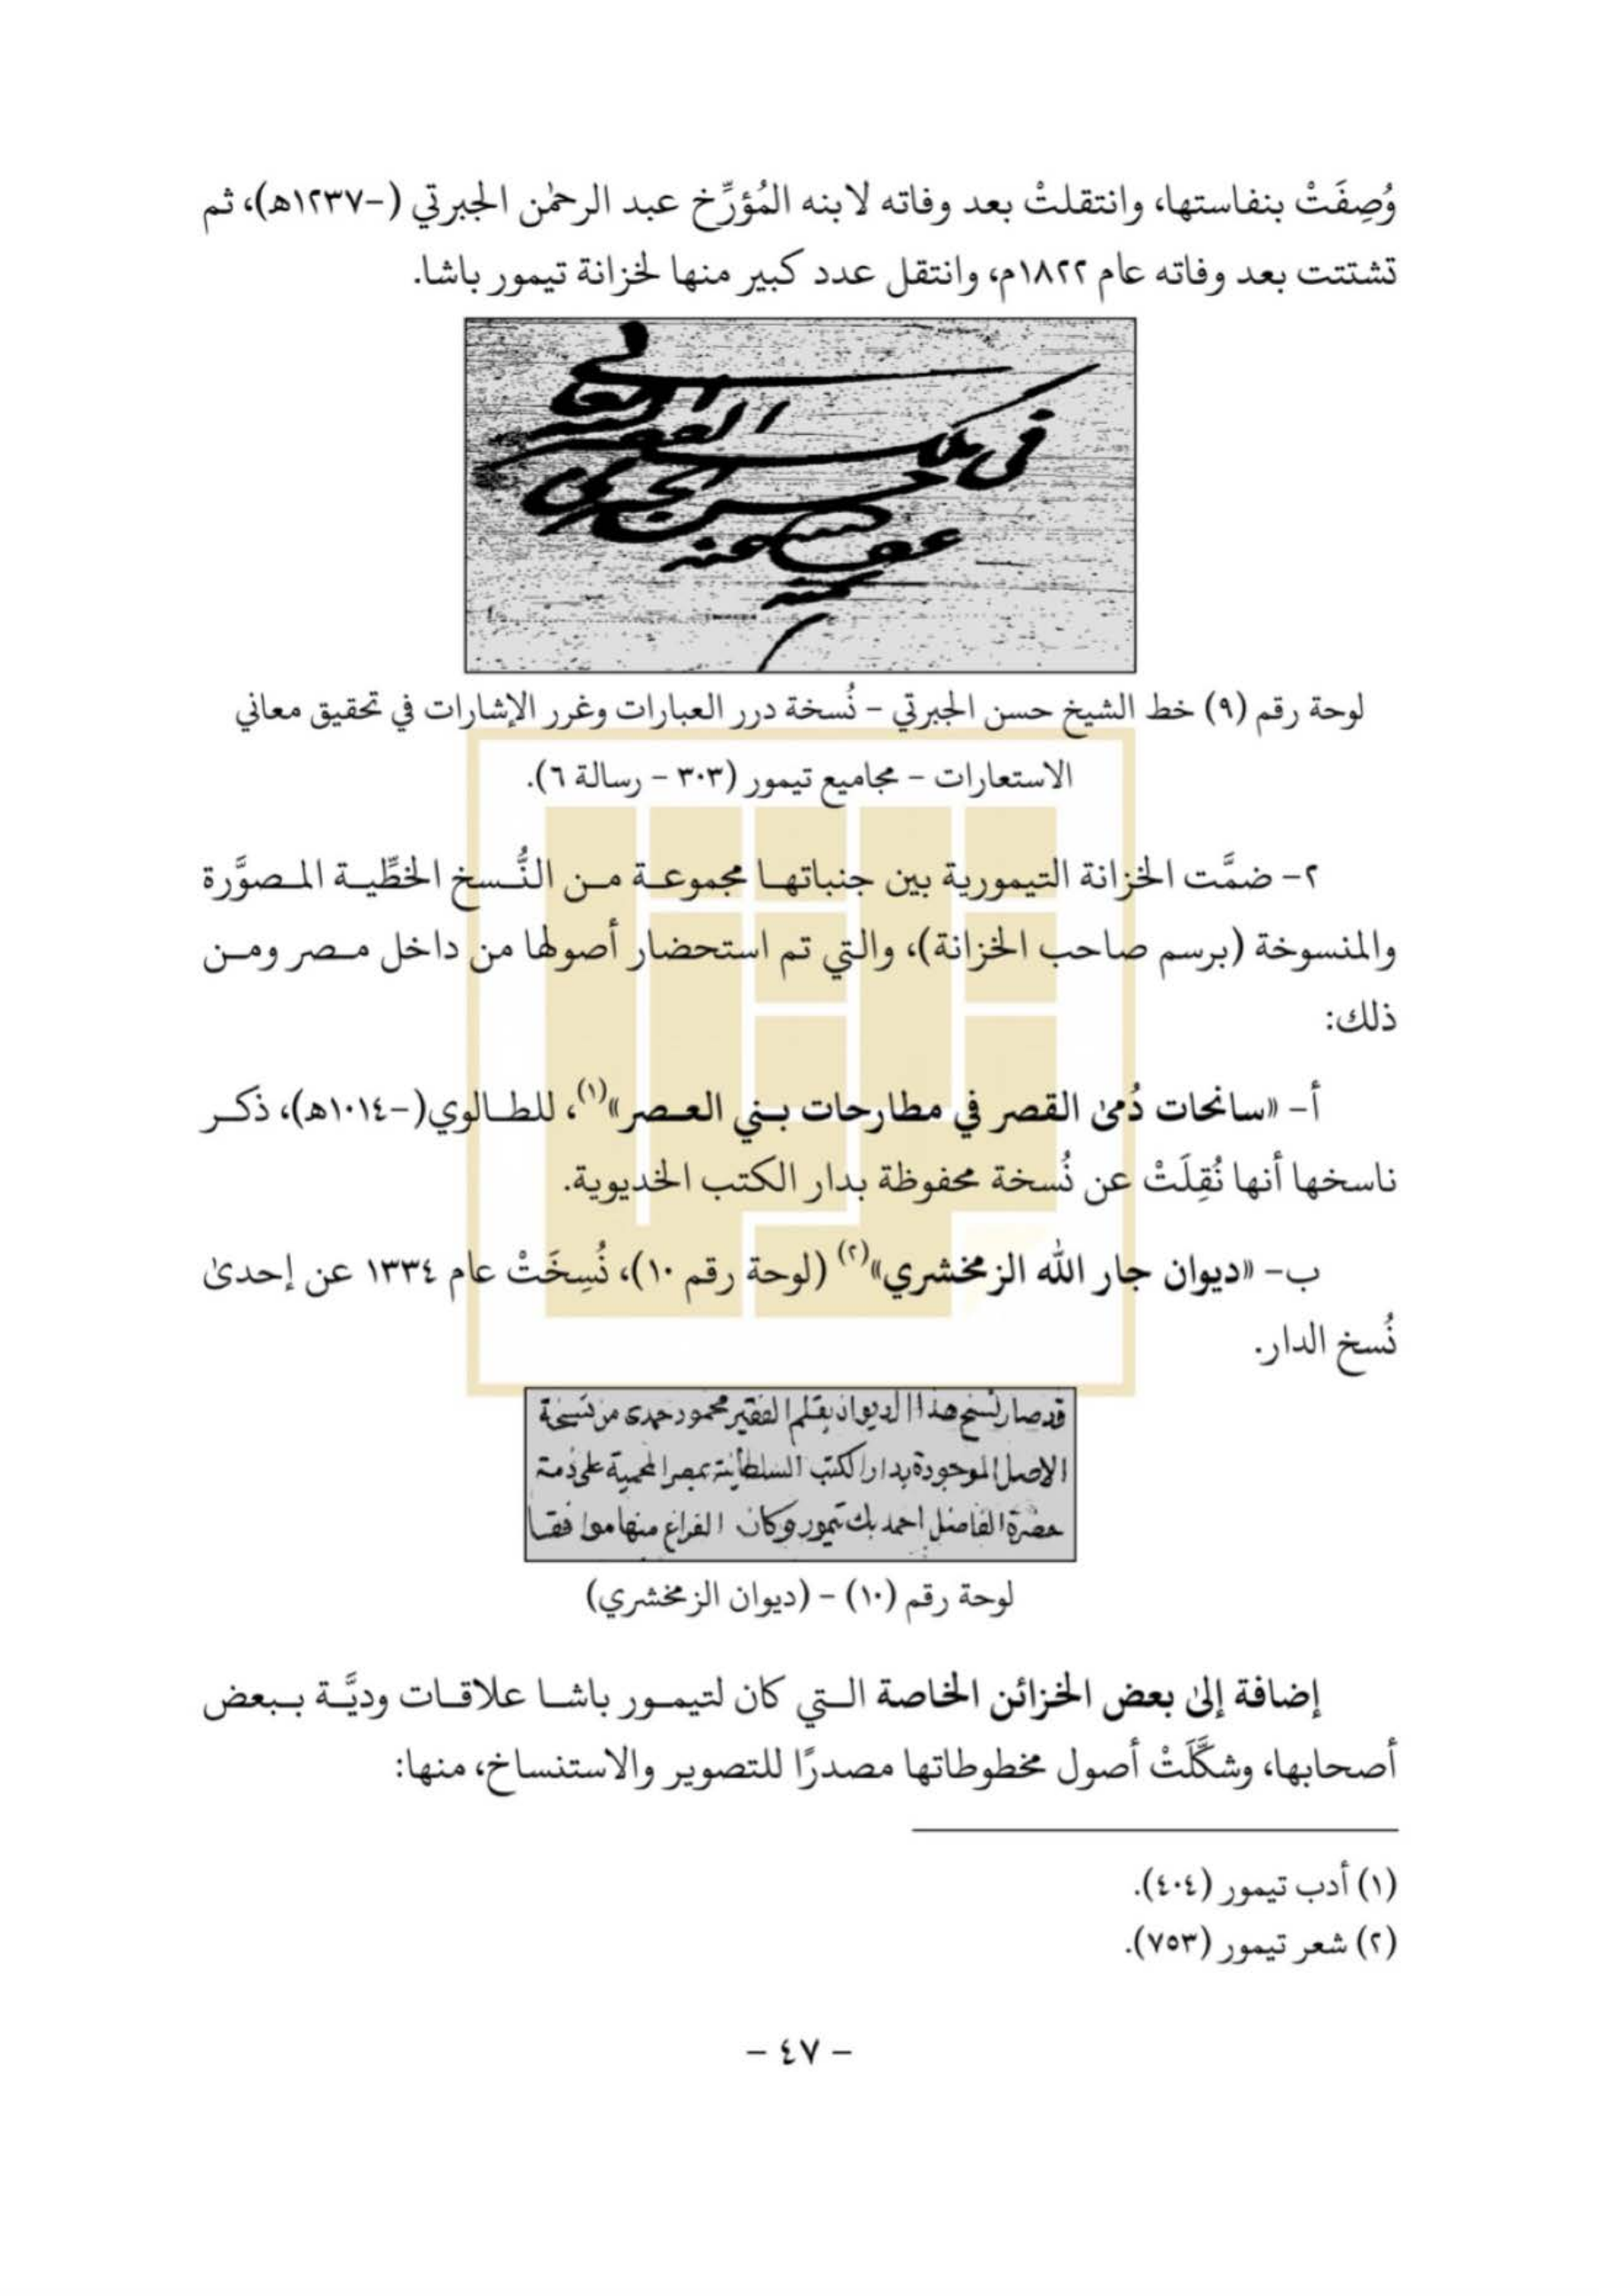 وُصِفَتْ بنفاستها، وانتقلتْ بعد وفاته لابنه المُؤرِّخ عبد الرحمٰن الجبرتي (-١٢٣٧هـ)، ثم
تشتتت بعد وفاته عام ١٨٢٢م، وانتقل عدد كبير منها لخزانة تيمور باشا.
في ملك
الفقير
حسن الجبرتي
عفي عنه
لوحة رقم (٩) خط الشيخ حسن الجبرتي - نُسخة درر العبارات وغرر الإشارات في تحقيق معاني
الاستعارات - مجاميع تيمور (٣٠٣ - رسالة ٦).
٢- ضمَّت الخزانة التيمورية بين جنباتها مجموعة من النُّسخ الخطِّية المصوَّرة
والمنسوخة (برسم صاحب الخزانة)، والتي تم استحضار أصولها من داخل مصر ومن
ذلك:
أ- «سانحات دُمىٰ القصر في مطارحات بني العصر»(١)، للطالوي(-١٠١٤هـ)، ذكر
ناسخها أنها نُقِلَتْ عن نُسخة محفوظة بدار الكتب الخديوية.
ب- «ديوان جار الله الزمخشري»(٢) (لوحة رقم ١٠)، نُسِخَتْ عام ١٣٣٤ عن إحدىٰ
نُسخ الدار.
قد صار نسخ هذا الديوان بقلم الفقير محمود حمدى من نسخة
الاصل الموجودة بدار الكتب السلطانية بمصر المحمية على ذمة
حضرة الفاضل احمد بك تيمور وكان الفراغ منها موافقا
لوحة رقم (١٠) - (ديوان الزمخشري)
إضافة إلىٰ بعض الخزائن الخاصة التي كان لتيمور باشا علاقات وديَّة ببعض
أصحابها، وشكَّلَتْ أصول مخطوطاتها مصدرًا للتصوير والاستنساخ، منها:
(١) أدب تيمور (٤٠٤).
(٢) شعر تيمور (٧٥٣).
- ٤٧ -